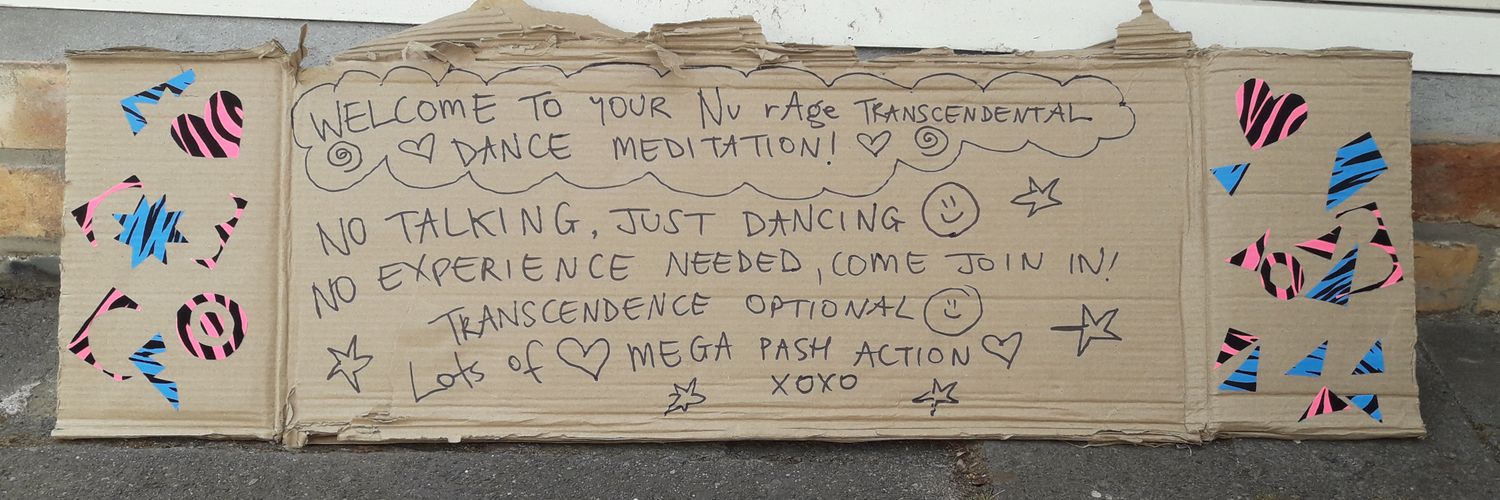 WELCOME TO YOUR NU rAge TRANSCENDENTAL
DANCE MEDITATION!
NO TALKING, JUST DANCING
NO EXPERIENCE NEEDED, COME JOIN IN!
TRANSCENDENCE OPTIONAL
Lots of MEGA PASH ACTION
XOXO